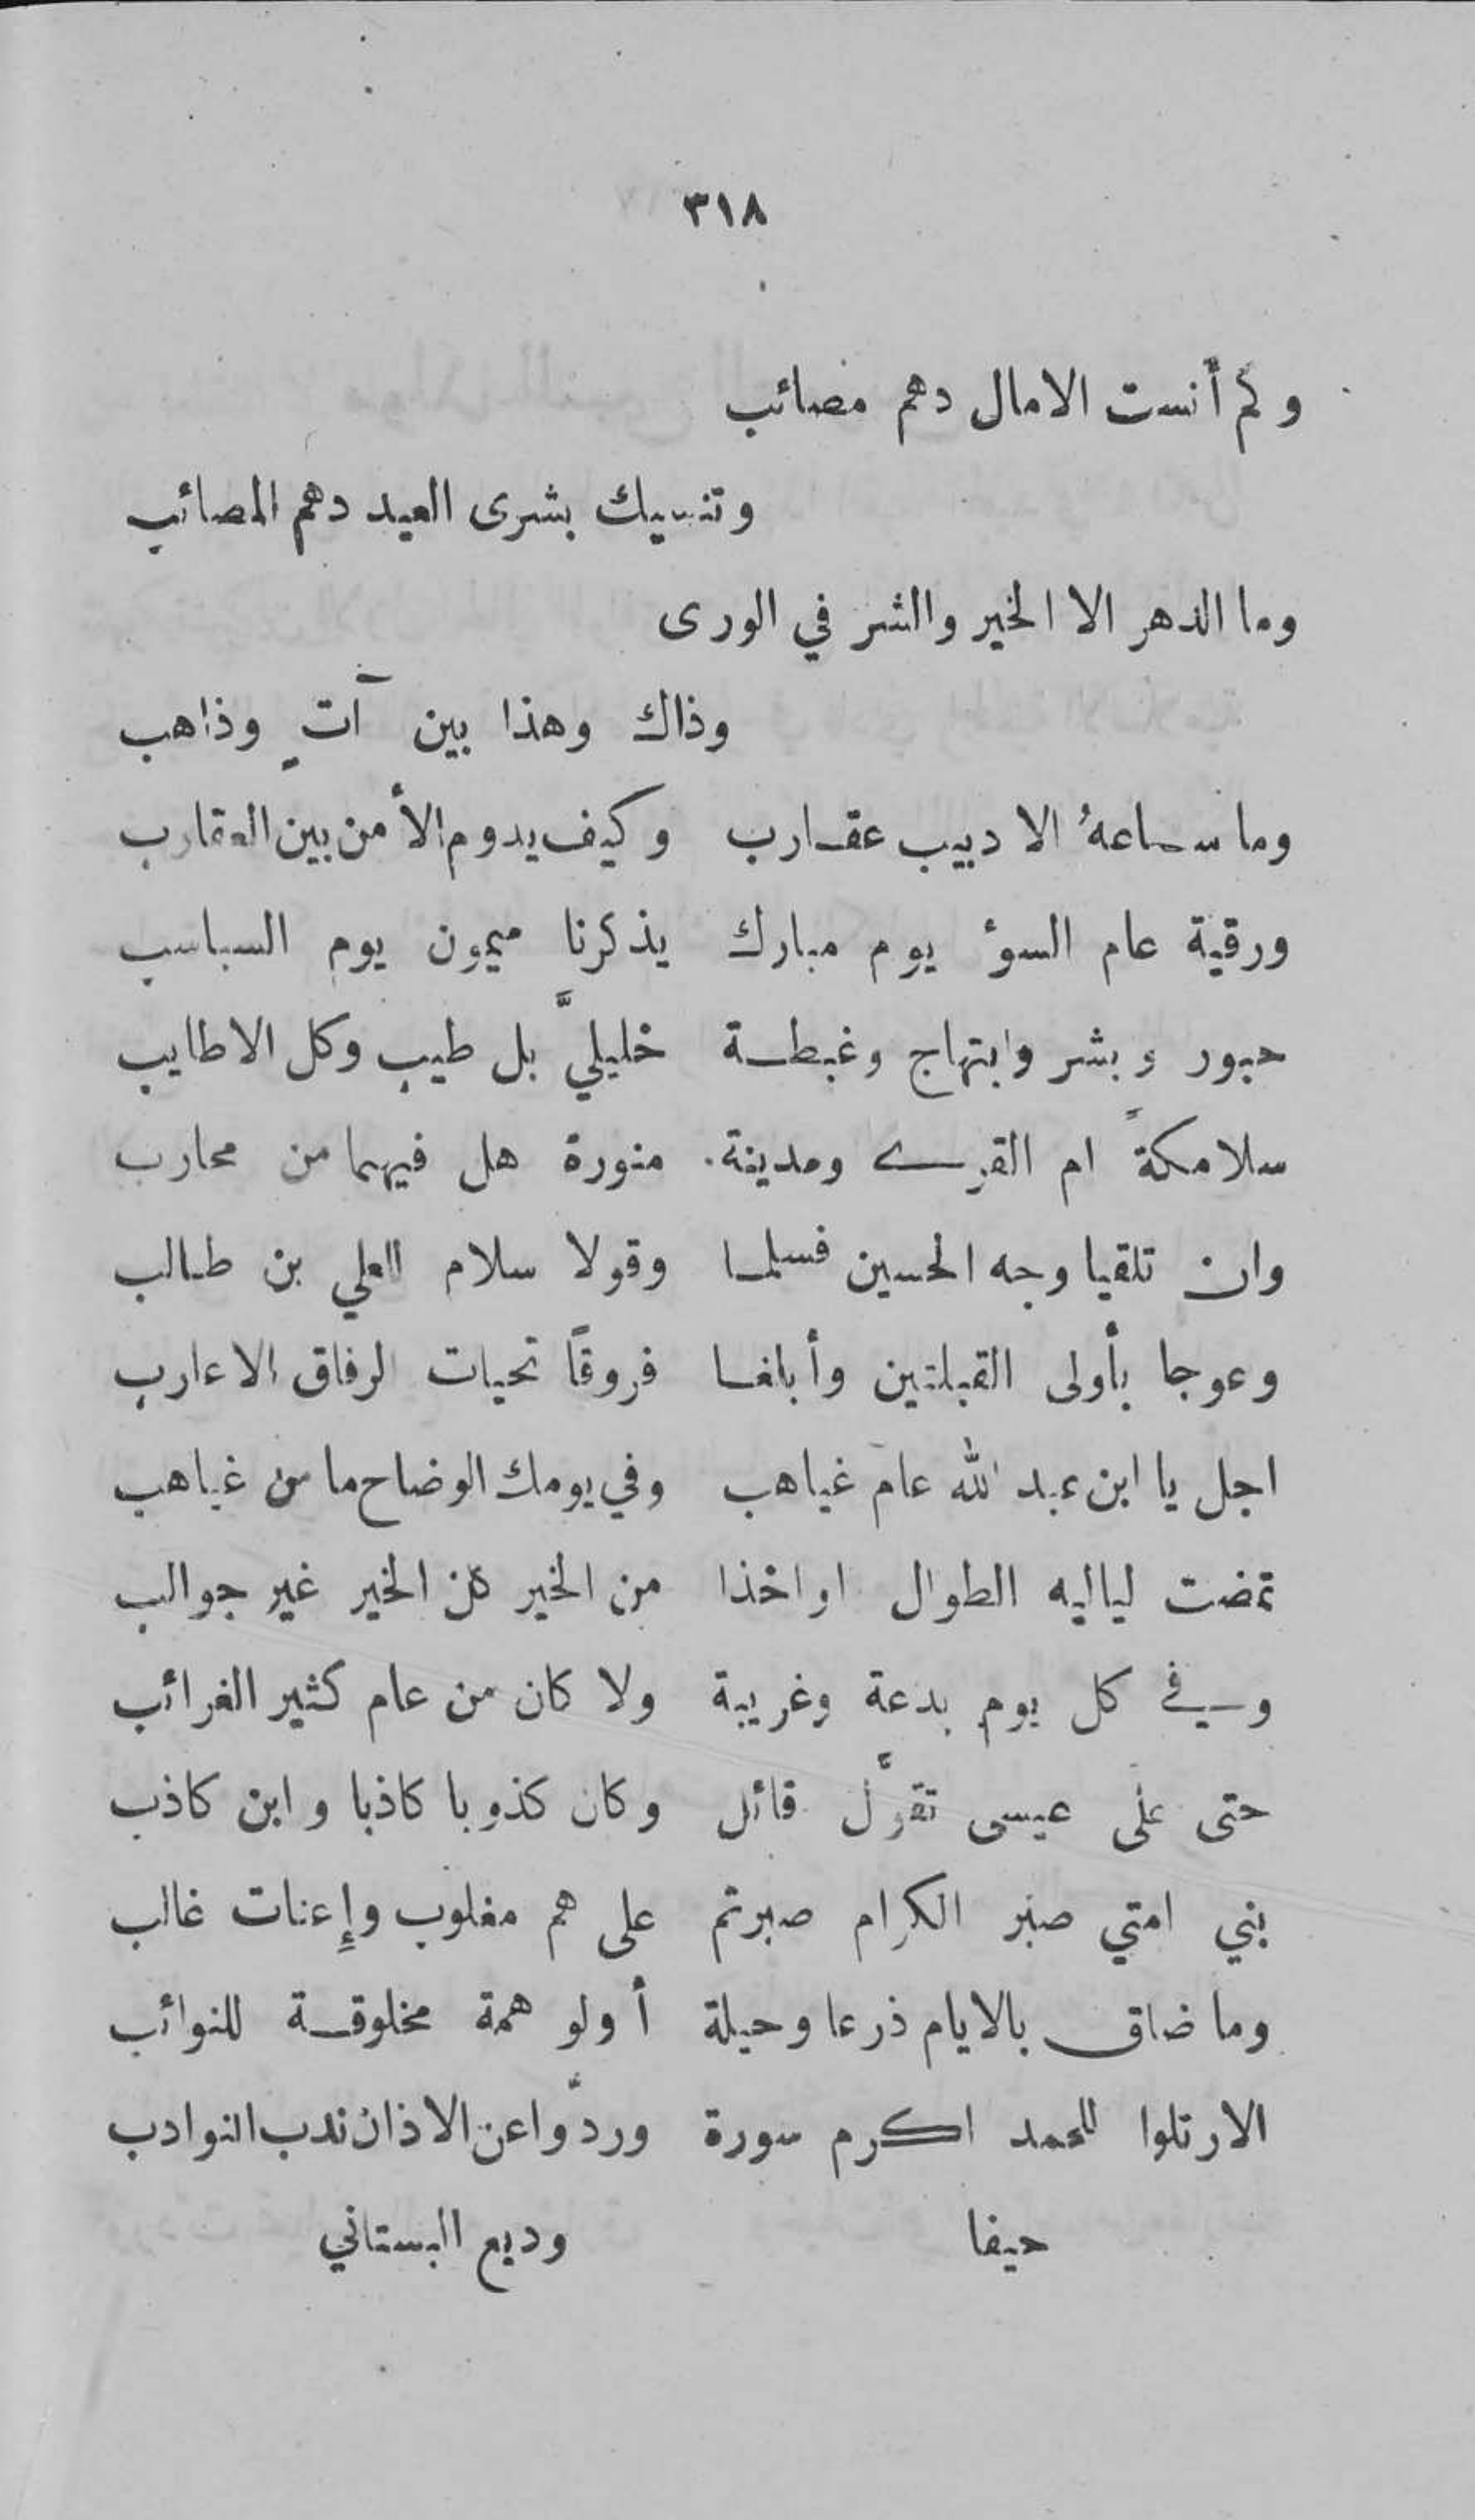 ٣١٨
وكم أنست الامال دهم مصائب
وتنسيك بشرى العيد دهم المصائب
وما الدهر الا الخير والشر في الورى
وذاك وهذا بين آتٍ وذاهب
وما ساعهُ الا دبيب عقارب وكيف يدوم الأمن بين العقارب
ورقية عام السوءِ يوم مبارك يذكرنا ميمون يوم السباسب
حبور وبشر وابتهاج وغبطة خليليَّ بل طيب وكل الاطايب
سلا مكةً ام القرى ومدينة منورة هل فيهما من محارب
وان تلقيا وجه الحسين فسلما وقولا سلام العلي بن طالب
وعوجا بأولى القبلتين وأبلغا فروقًا تحيات الرفاق الاعارب
اجل يا ابن عبد الله عام غياهب وفي يومك الوضاح ما من غياهب
تمضت لياليه الطوال اواخذا من الخير هن الخير غير جوالب
وفي كل يوم بدعة وغريبة ولا كان من عام كثير الغرائب
حتى على عيسى تقوَّل قائل وكان كذوبا كاذبا وابن كاذب
بني امتي صبر الكرام صبرتم على هم مغلوب وإعنات غالب
وما ضاق بالايام ذرعا وحيلة أولو همة مخلوقة للنوائب
الا رتلوا للحمد اكرم سورة وردّوا عن الاذان ندب النوادب
حيفا وديع البستاني